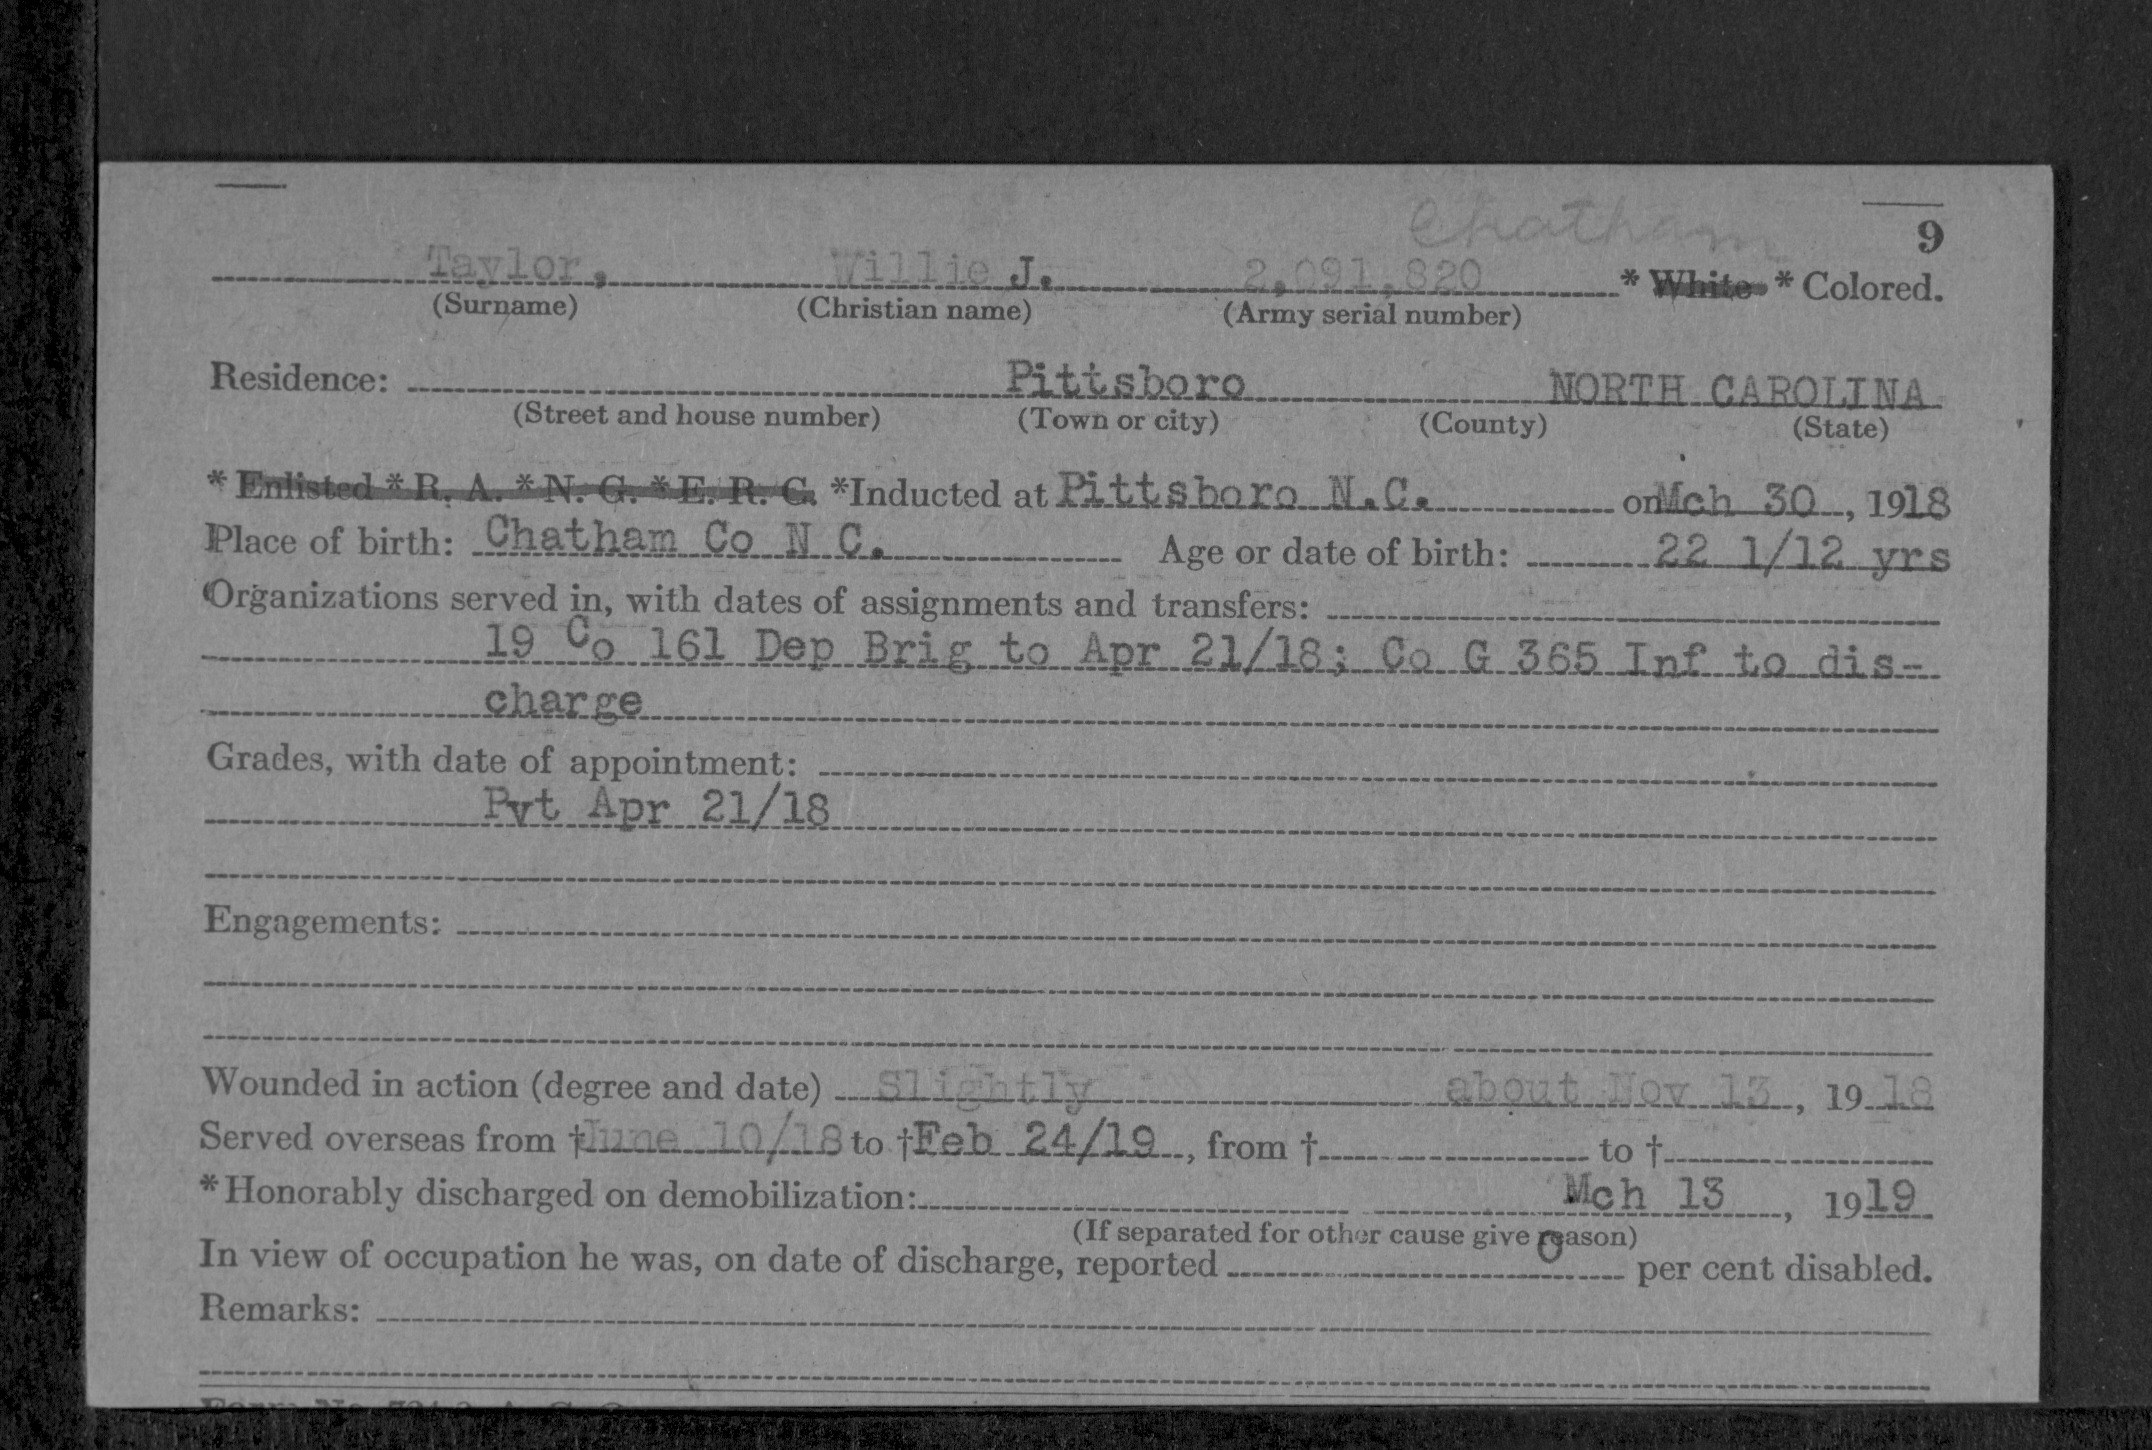 Chatham
9
Taylor, Willie J. 2,091,820 * White * Colored.
(Surname) (Christian name) (Army serial number)
Residence: Pittsboro NORTH CAROLINA
(Street and house number) (Town or city) (County) (State)
* Enlisted * R. A. * N. G. * E. R. C. *Inducted at Pittsboro N.C. on Mch 30, 1918
Place of birth: Chatham Co N C. Age or date of birth: 22 1/12 yrs
Organizations served in, with dates of assignments and transfers:
19 Co 161 Dep Brig to Apr 21/18; Co G 365 Inf to dis-
charge
Grades, with date of appointment:
Pvt Apr 21/18
Engagements:
Wounded in action (degree and date) Slightly about Nov 13, 19 18
Served overseas from † June 10/18 to † Feb 24/19, from † to †
* Honorably discharged on demobilization: Mch 13, 1919
(If separated for other cause give reason)
In view of occupation he was, on date of discharge, reported 0 per cent disabled.
Remarks: